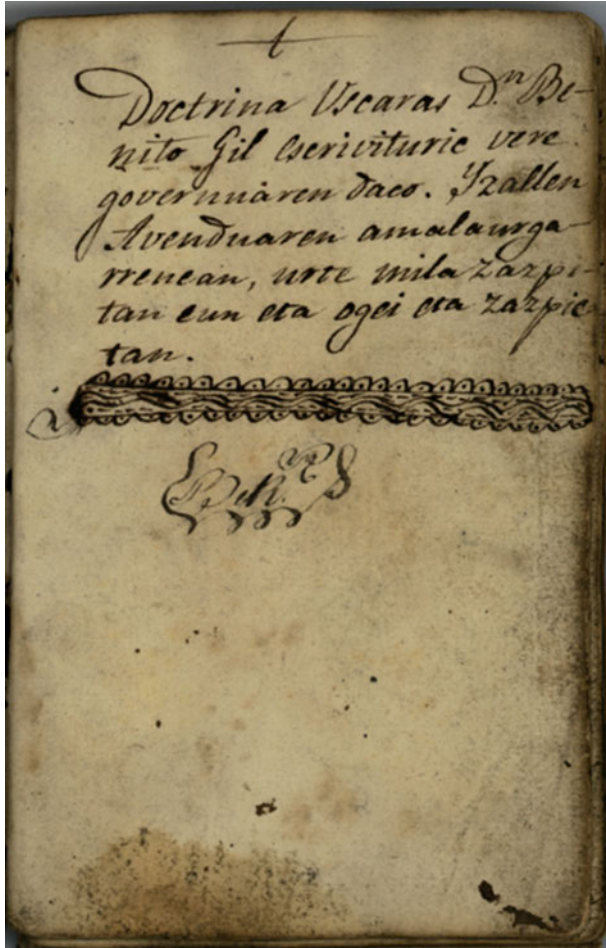 Doctrina Uscaras D.ⁿ Be-
nito Gil Escrivituric vere
governuaren daco. Yzallen
Avenduaren amalaurga-
rrenean, urte mila zazpi-
tan eun eta ogei eta zazpie-
tan.